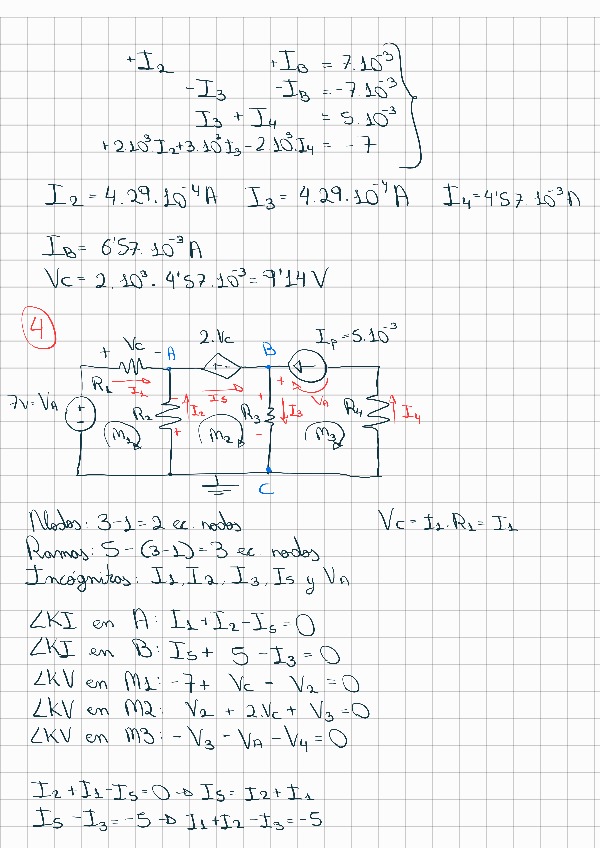 +I2 +IB = 7.10^-3
-I3 -IB = -7.10^-3
I3 + I4 = 5.10^-3
+2.10^3.I2+3.10^3I3-2.10^3.I4 = -7
I2 = 4.29.10^-4A I3 = 4.29.10^-4A I4=4'57.10^-3A
IB = 6'57.10^-3A
Vc = 2.10^3.4'57.10^-3=9'14V
4
+ Vc - A 2.Vc B Ip=5.10^-3
R1 I1 I5 + VA
7V=VA + - R2 - + I2 R3 + - I3 R4 I4
M1 M2 M3
C
Nodos: 3-1=2 ec. nodos Vc = I1.R1 = I1
Ramas: 5-(3-1)=3 ec nodos
Incógnitas: I1, I2, I3, I5 y VA
∠KI en A: I1+I2-I5=0
∠KI en B: I5+ 5 -I3=0
∠KV en M1: -7+ Vc - V2=0
∠KV en M2: V2 + 2.Vc + V3=0
∠KV en M3: -V3 -VA -V4=0
I2+I1-I5=0 → I5=I2+I1
I5 -I3=-5 → I1+I2-I3=-5